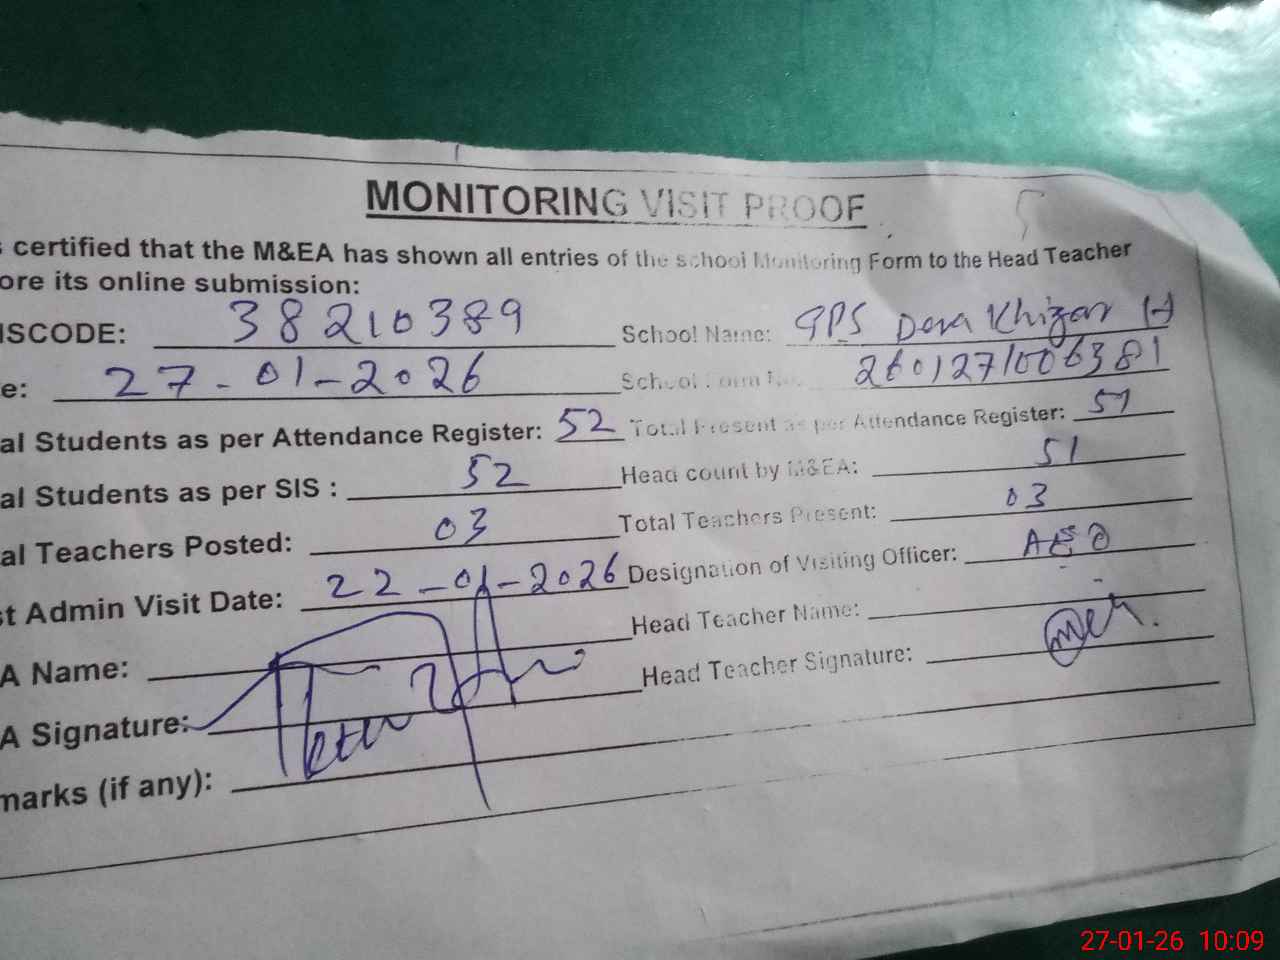 MONITORING VISIT PROOF
s certified that the M&EA has shown all entries of the school Monitoring Form to the Head Teacher
ore its online submission:
ISCODE: 38210389 School Name: GPS Dera Khizar H
e: 27-01-2026 School Form No. 2601271006381
al Students as per Attendance Register: 52 Total Present as per Attendance Register: 51
al Students as per SIS : 52 Head count by M&EA: 51
al Teachers Posted: 03 Total Teachers Present: 03
st Admin Visit Date: 22-01-2026 Designation of Visiting Officer: AEO
A Name: Head Teacher Name:
A Signature: Head Teacher Signature:
marks (if any):
27-01-26 10:09